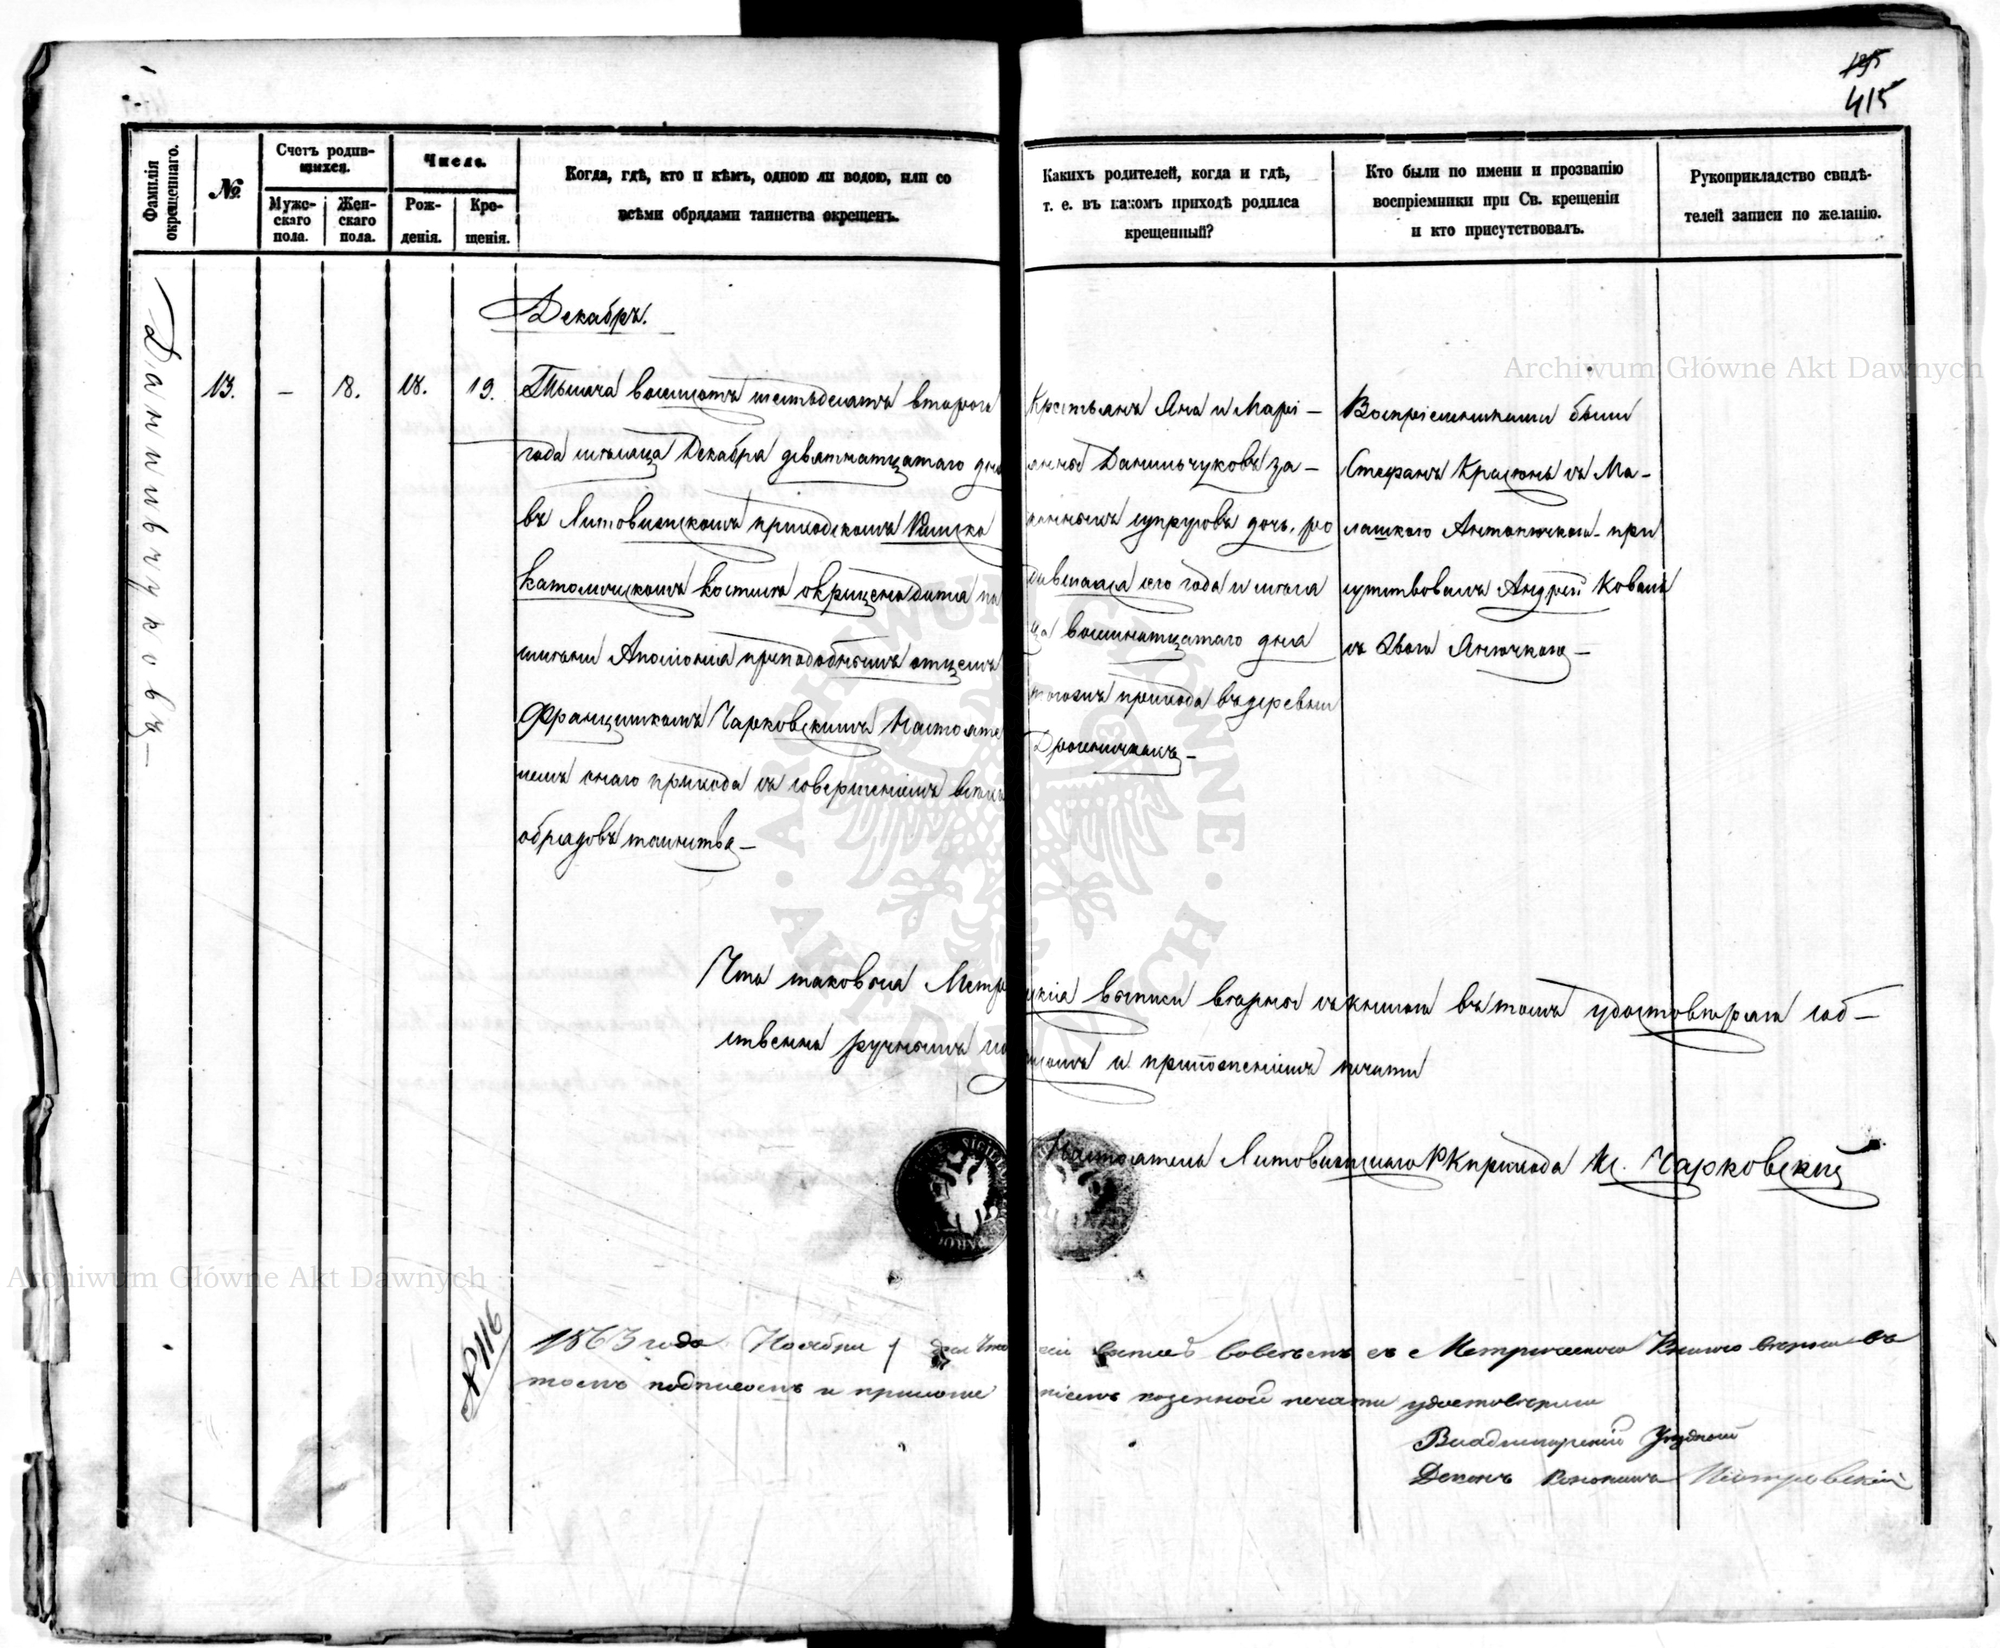 125
415
Фамилія окрещеннаго.
№.
Счетъ родив-
шихся.
Мужс-
скаго
пола.
Жен-
скаго
пола.
Число.
Рож-
денія.
Кре-
щенія.
Когда, гдѣ, кто и кѣмъ, одною ли водою, или со
всѣми обрядами таинства окрещенъ.
Какихъ родителей, когда и гдѣ,
т. е. въ какомъ приходѣ родился
крещенный?
Кто были по имени и прозванію
воспріемники при Св. крещеніи
и кто присутствовалъ.
Рукоприкладство свидѣ-
телей записи по желанію.
Данильчуковъ
Декабрь.
13.
—
18.
18.
19.
Тысяча восемсотъ шестьдесятъ втораго
года мѣсяца Декабра девятнатцатаго дня
въ Литовижскомъ приходскомъ Римско
Католическомъ костелѣ окрещено дитя по
имени Аполонія преподобнымъ отцемъ
Францишкомъ Чарковскимъ Настояте
лемъ онаго прихода съ совершеніемъ всѣхъ
обрядовъ таинства—
Крестьянъ Яна и Марі-
янны Данильчуковъ за-
конныхъ супруговъ дочь, ро
дившаяся сего года и мѣся
ца восемнатцатаго дня
тогожъ прихода въ деревни
Воспріемниками были
Стефанъ Красюнъ съ Ма-
лашкою Антонюкою при
сутствовалъ Андрей Коваль
съ Евою Янючкою—
Что таковыя Метрическія выписи вѣрны съ книгою въ томъ удостовѣряю соб-
ственно ручнымъ подписомъ и приложеніемъ печати
Настоятель Литовижскаго РК прихода К. Чарковскій
№116
1863 года Ноября 1 дня что сей выписъ вовсемъ съ Метрическою Книгою вѣренъ въ
томъ подписомъ и приложеніемъ казенной печати удостовѣряю
Владимирскій Уѣздной
Деканъ Каноникъ Піотровскій
Archiwum Główne Akt Dawnych
Archiwum Główne Akt Dawnych